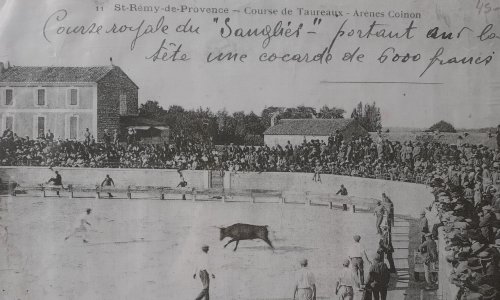 11 St-Rémy-de-Provence - Course de Taureaux - Arènes Coinon
Course royale du "Sangliés" - portant sur la
tête une cocarde de 6000 francs